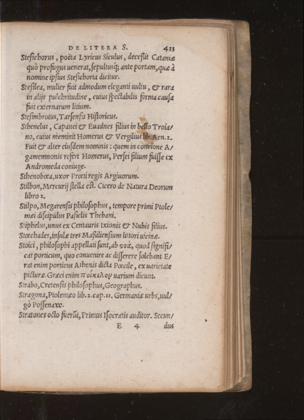 DE LITERA S. 423
Stesichorus, poëta Lyricus Siculus, decessit Cataniæ
quò profugus uenerat, sepultusq; ante portam, quæ à
nomine ipsius Stesichoria dicitur.
Stesilea, mulier fuit admodum eleganti uultu, & rara
in alijs pulchritudine, cuius spectabilis forma causa
fuit externarum litium.
Stesimbrotus, Tarsensis Historicus.
Sthenelus, Capanei & Euadnes filius in bello Troia-
no, cuius meminit Homerus & Vergilius lib. Aen. 2.
Fuit & alter eiusdem nominis: quem in contione A-
gamemnonis refert Homerus, Persei filium fuisse ex
Andromeda coniuge.
Sthenobœa, uxor Prœti regis Argiuorum.
Stilbon, Mercurij stella est. Cicero de Natura Deorum
libro 2.
Stilpo, Megarensis philosophus, tempore primi Ptole-
mæi discipulus Pasiclis Thebani.
Stiphelus, unus ex Centauris Ixionis & Nubis filius.
Stœchades, insulæ tres Massiliensium litori uicinæ.
Stoici, philosophi appellati sunt, ab στοά, quod signifi-
cat porticum, quo conuenere ac disserere solebant E-
rat enim porticus Athenis dicta Pœcile, ex uarietate
picturæ. Græci enim ποίκιλον uarium dicunt.
Strabo, Cretensis philosophus, Geographus.
Stragona, Ptolemæo lib. 2. cap. 11. Germaniæ urbs, uul-
gò Possenaxo.
Stratones octo fuerūt, Primus Isocratis auditor. Secun-
E 4 dus